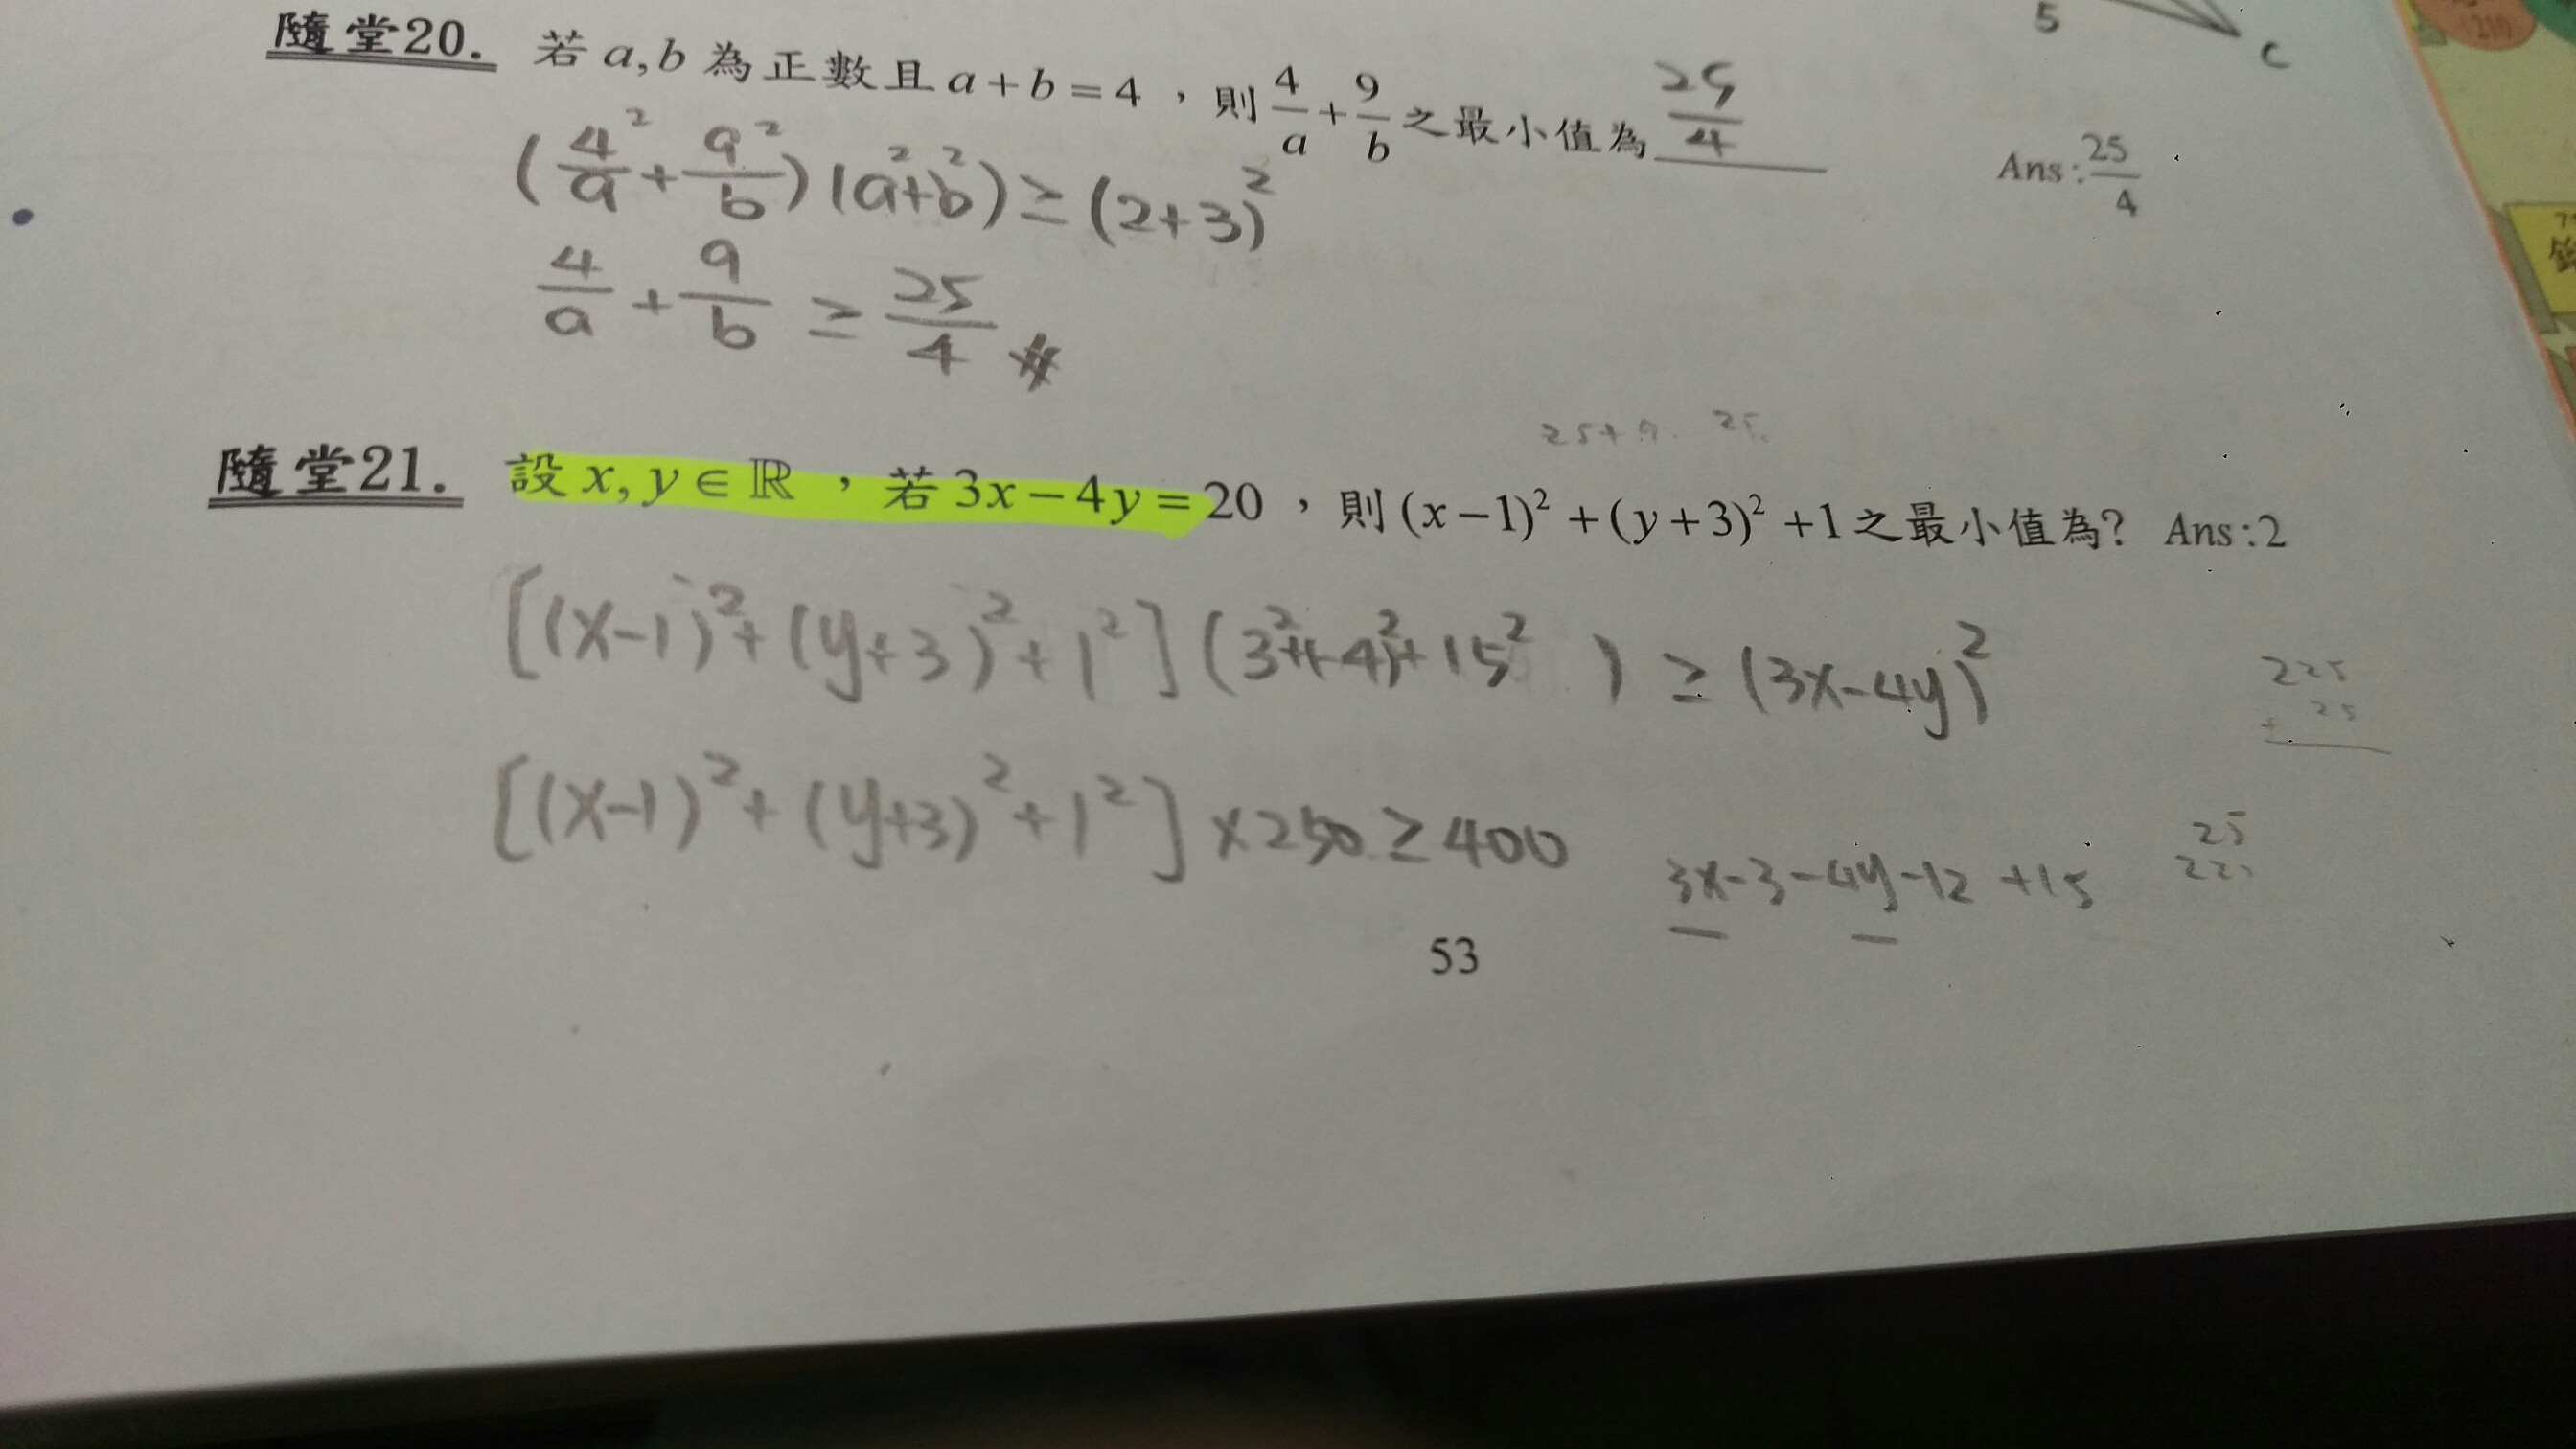 5
C
隨堂20. 若 a,b 為正數且 a+b=4 ，則 4/a + 9/b 之最小值為 25/4
Ans: 25/4
(4/a² + 9/b²)(a²+b²) ≥ (2+3)²
4/a + 9/b ≥ 25/4
25+9. 25.
隨堂21. 設 x, y ∈ ℝ ，若 3x−4y=20 ，則 (x−1)² + (y+3)² +1 之最小值為? Ans:2
[(x-1)²+(y+3)²+1²](3²+(-4)²+15² ) ≥ (3x-4y)²
225
+ 25
[(x-1)²+(y+3)²+1²] ×250 ≥ 400
3x-3-4y-12 +15
25
53